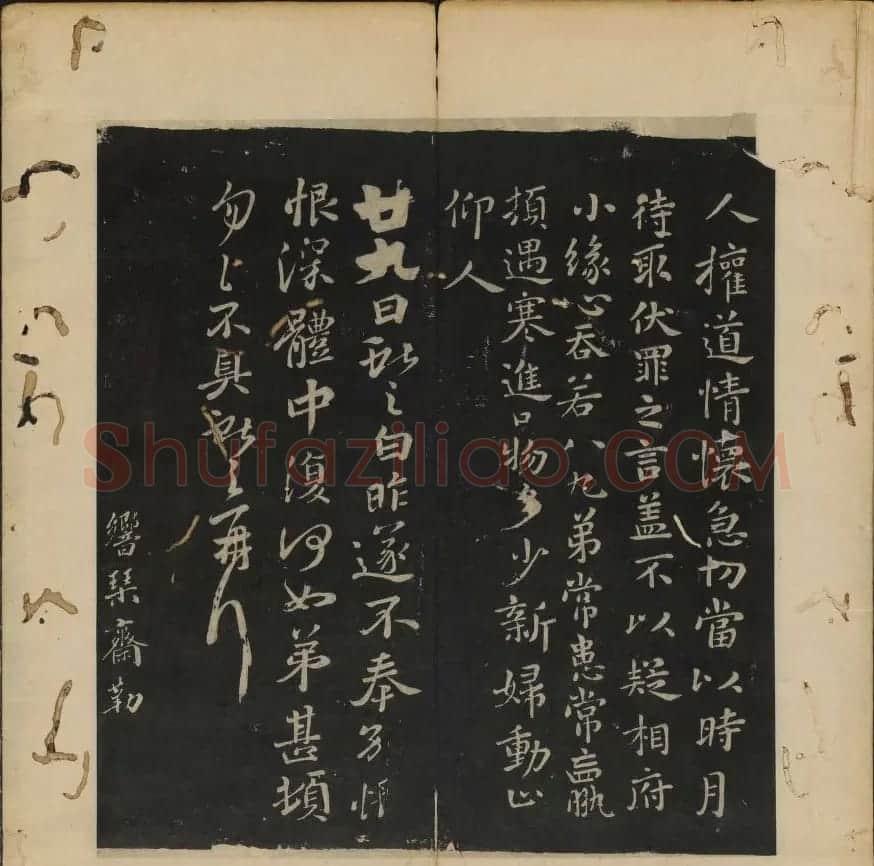 人㩲道情懷急切當以時月
待取伏罪之言蓋不以疑相府
小緣心吞若八九弟常患常羸
頓遇寒進口物多少新婦動止
仰人
廿九日獻之白昨遂不奉別悵
恨深體中復何如弟甚頓
勿勿不具獻之再拜
響琹齋勒
Shufaziliao.COM